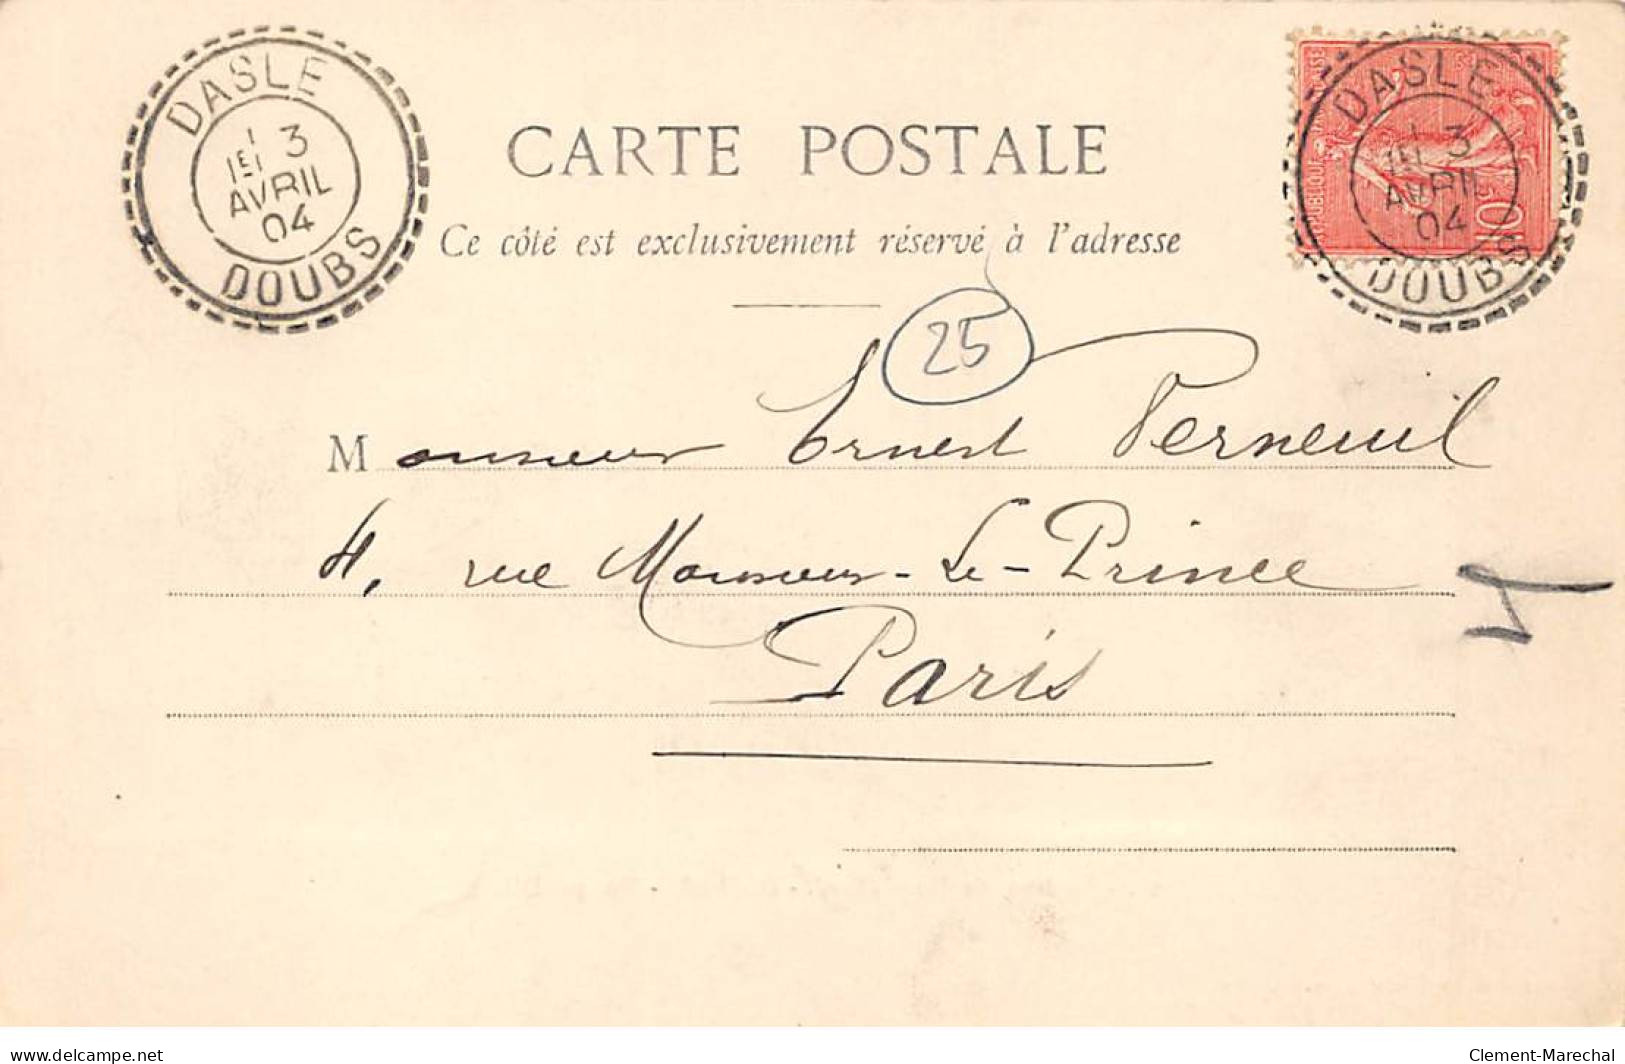 DASLE
1 3
1E
AVRIL
04
DOUBS
DASLE
1 3
1E
AVRIL
04
DOUBS
RÉPUBLIQUE
10
CARTE POSTALE
Ce côté est exclusivement réservé à l'adresse
25
Monsieur Ernest Verneuil
4, rue Monsieur-Le-Prince
Paris
delcampe.net
Clement-Marechal